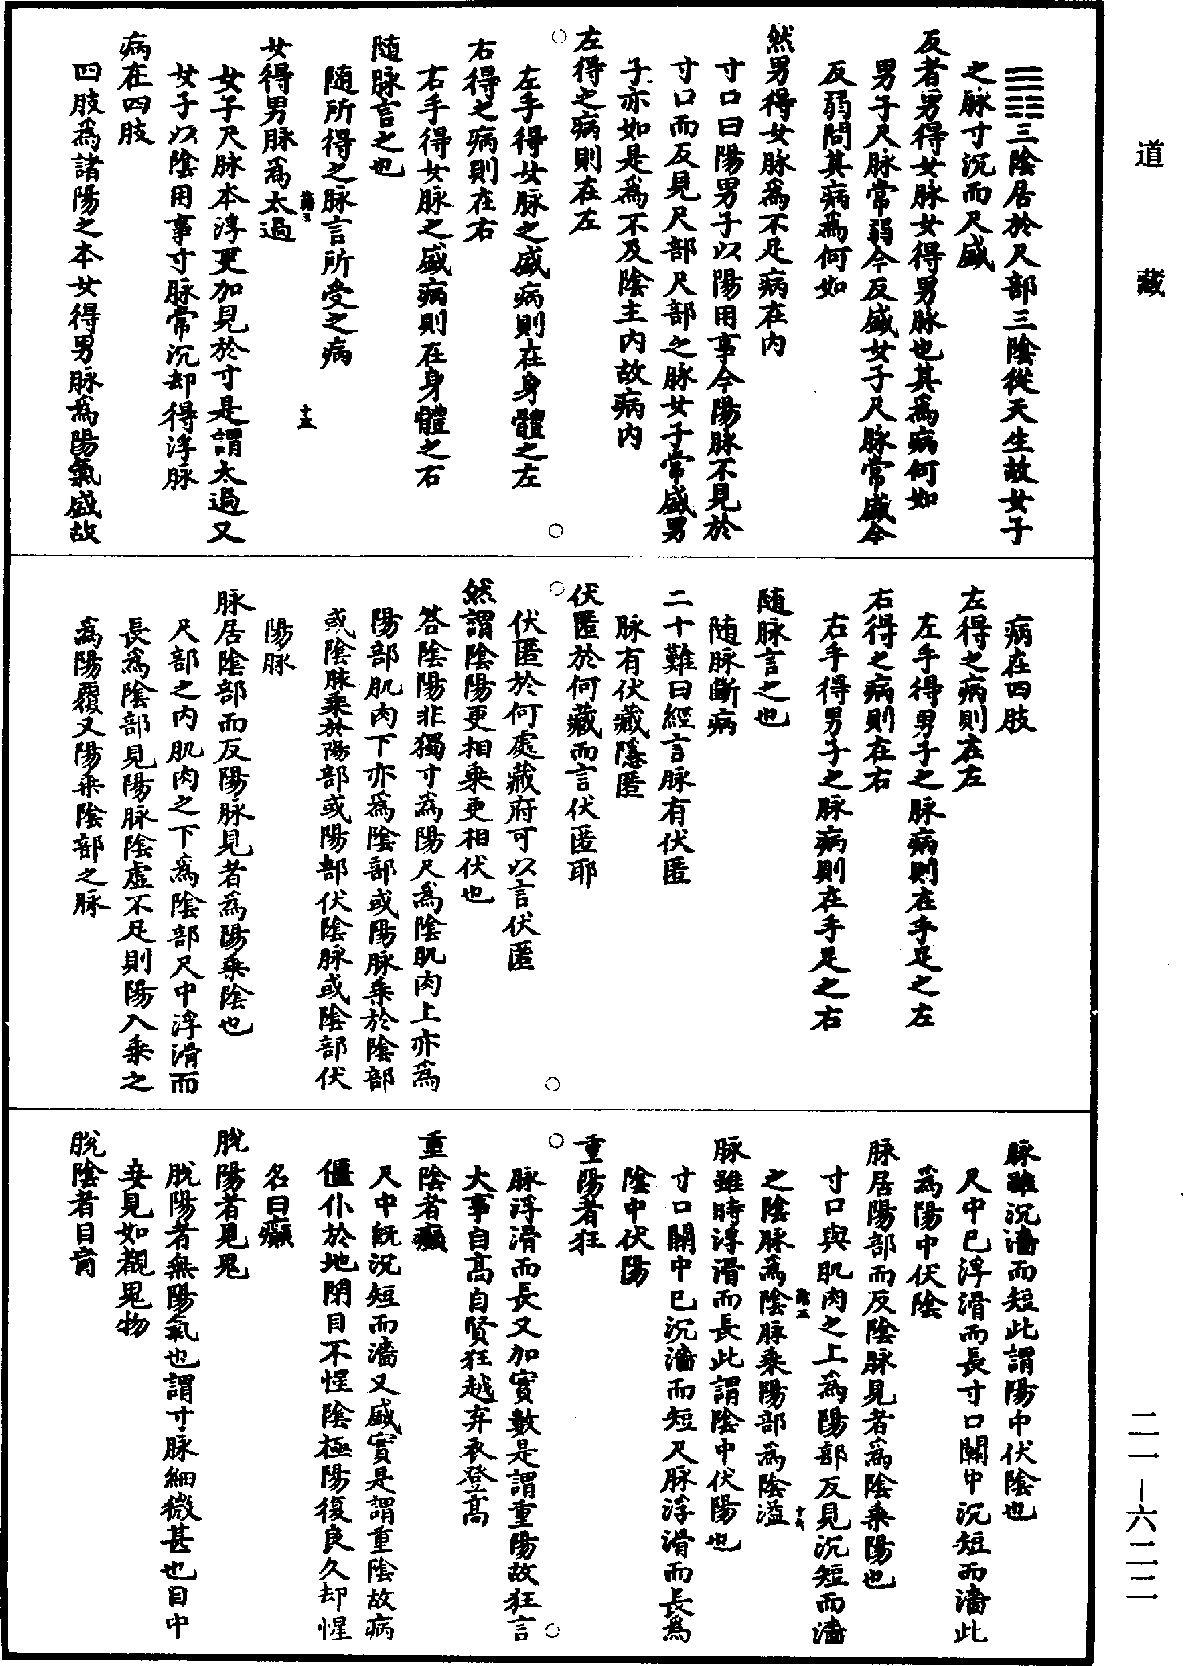 道藏
☰☷三陰居於尺部三陰從天生故女子
之脉寸沉而尺盛
反者男得女脉女得男脉也其爲病何如
男子尺脉常弱今反盛女子尺脉常盛今
反弱問其病爲何如
然男得女脉爲不足病在內
寸口曰陽男子以陽用事今陽脉不見於
寸口而反見尺部尺部之脉女子常盛男
子亦如是爲不及陰主內故病內
左得之病則在左
左手得女脉之盛病則在身體之左
右得之病則在右
右手得女脉之盛病則在身體之右
隨脉言之也
隨所得之脉言所受之病
十五
女得男脉爲太過
女子尺脉本浮更加見於寸是謂太過又
女子以陰用事寸脉常沉却得浮脉
病在四肢
四肢爲諸陽之本女得男脉爲陽氣盛故
病在四肢
左得之病則在左
左手得男子之脉病則在手足之左
右得之病則在右
右手得男子之脉病則在手足之右
隨脉言之也
隨脉斷病
二十難曰經言脉有伏匿
脉有伏藏隱匿
伏匿於何藏而言伏匿耶
伏匿於何處藏府可以言伏匿
然謂陰陽更相乘更相伏也
答陰陽非獨寸爲陽尺爲陰肌肉上亦爲
陽部肌肉下亦爲陰部或陽脉乘於陰部
或陰脉乘於陽部或陽部伏陰脉或陰部伏
陽脉
脉居陰部而反陽脉見者爲陽乘陰也
尺部之內肌肉之下爲陰部尺中浮滑而
長爲陰部見陽脉陰虛不足則陽入乘之
爲陽覆又陽乘陰部之脉
脉雖沉濇而短此謂陽中伏陰也
尺中已浮滑而長寸口關中沉短而濇此
爲陽中伏陰
脉居陽部而反陰脉見者爲陰乘陽也
寸口與肌肉之上爲陽部反見沉短而濇
之陰脉爲陰脉乘陽部爲陰溢
十六
脉雖時浮滑而長此謂陰中伏陽也
寸口關中已沉濇而短尺脉浮滑而長爲
陰中伏陽
重陽者狂
脉浮滑而長又加實數是謂重陽故狂言
大事自高自賢狂越弃衣登高
重陰者癲
尺中既沉短而濇又盛實是謂重陰故病
僵仆於地閉目不惺陰極陽復良久却惺
名曰癲
脫陽者見鬼
脫陽者無陽氣也謂寸脉細微甚也目中
妄見如觀鬼物
脫陰者目盲
二一—六二二